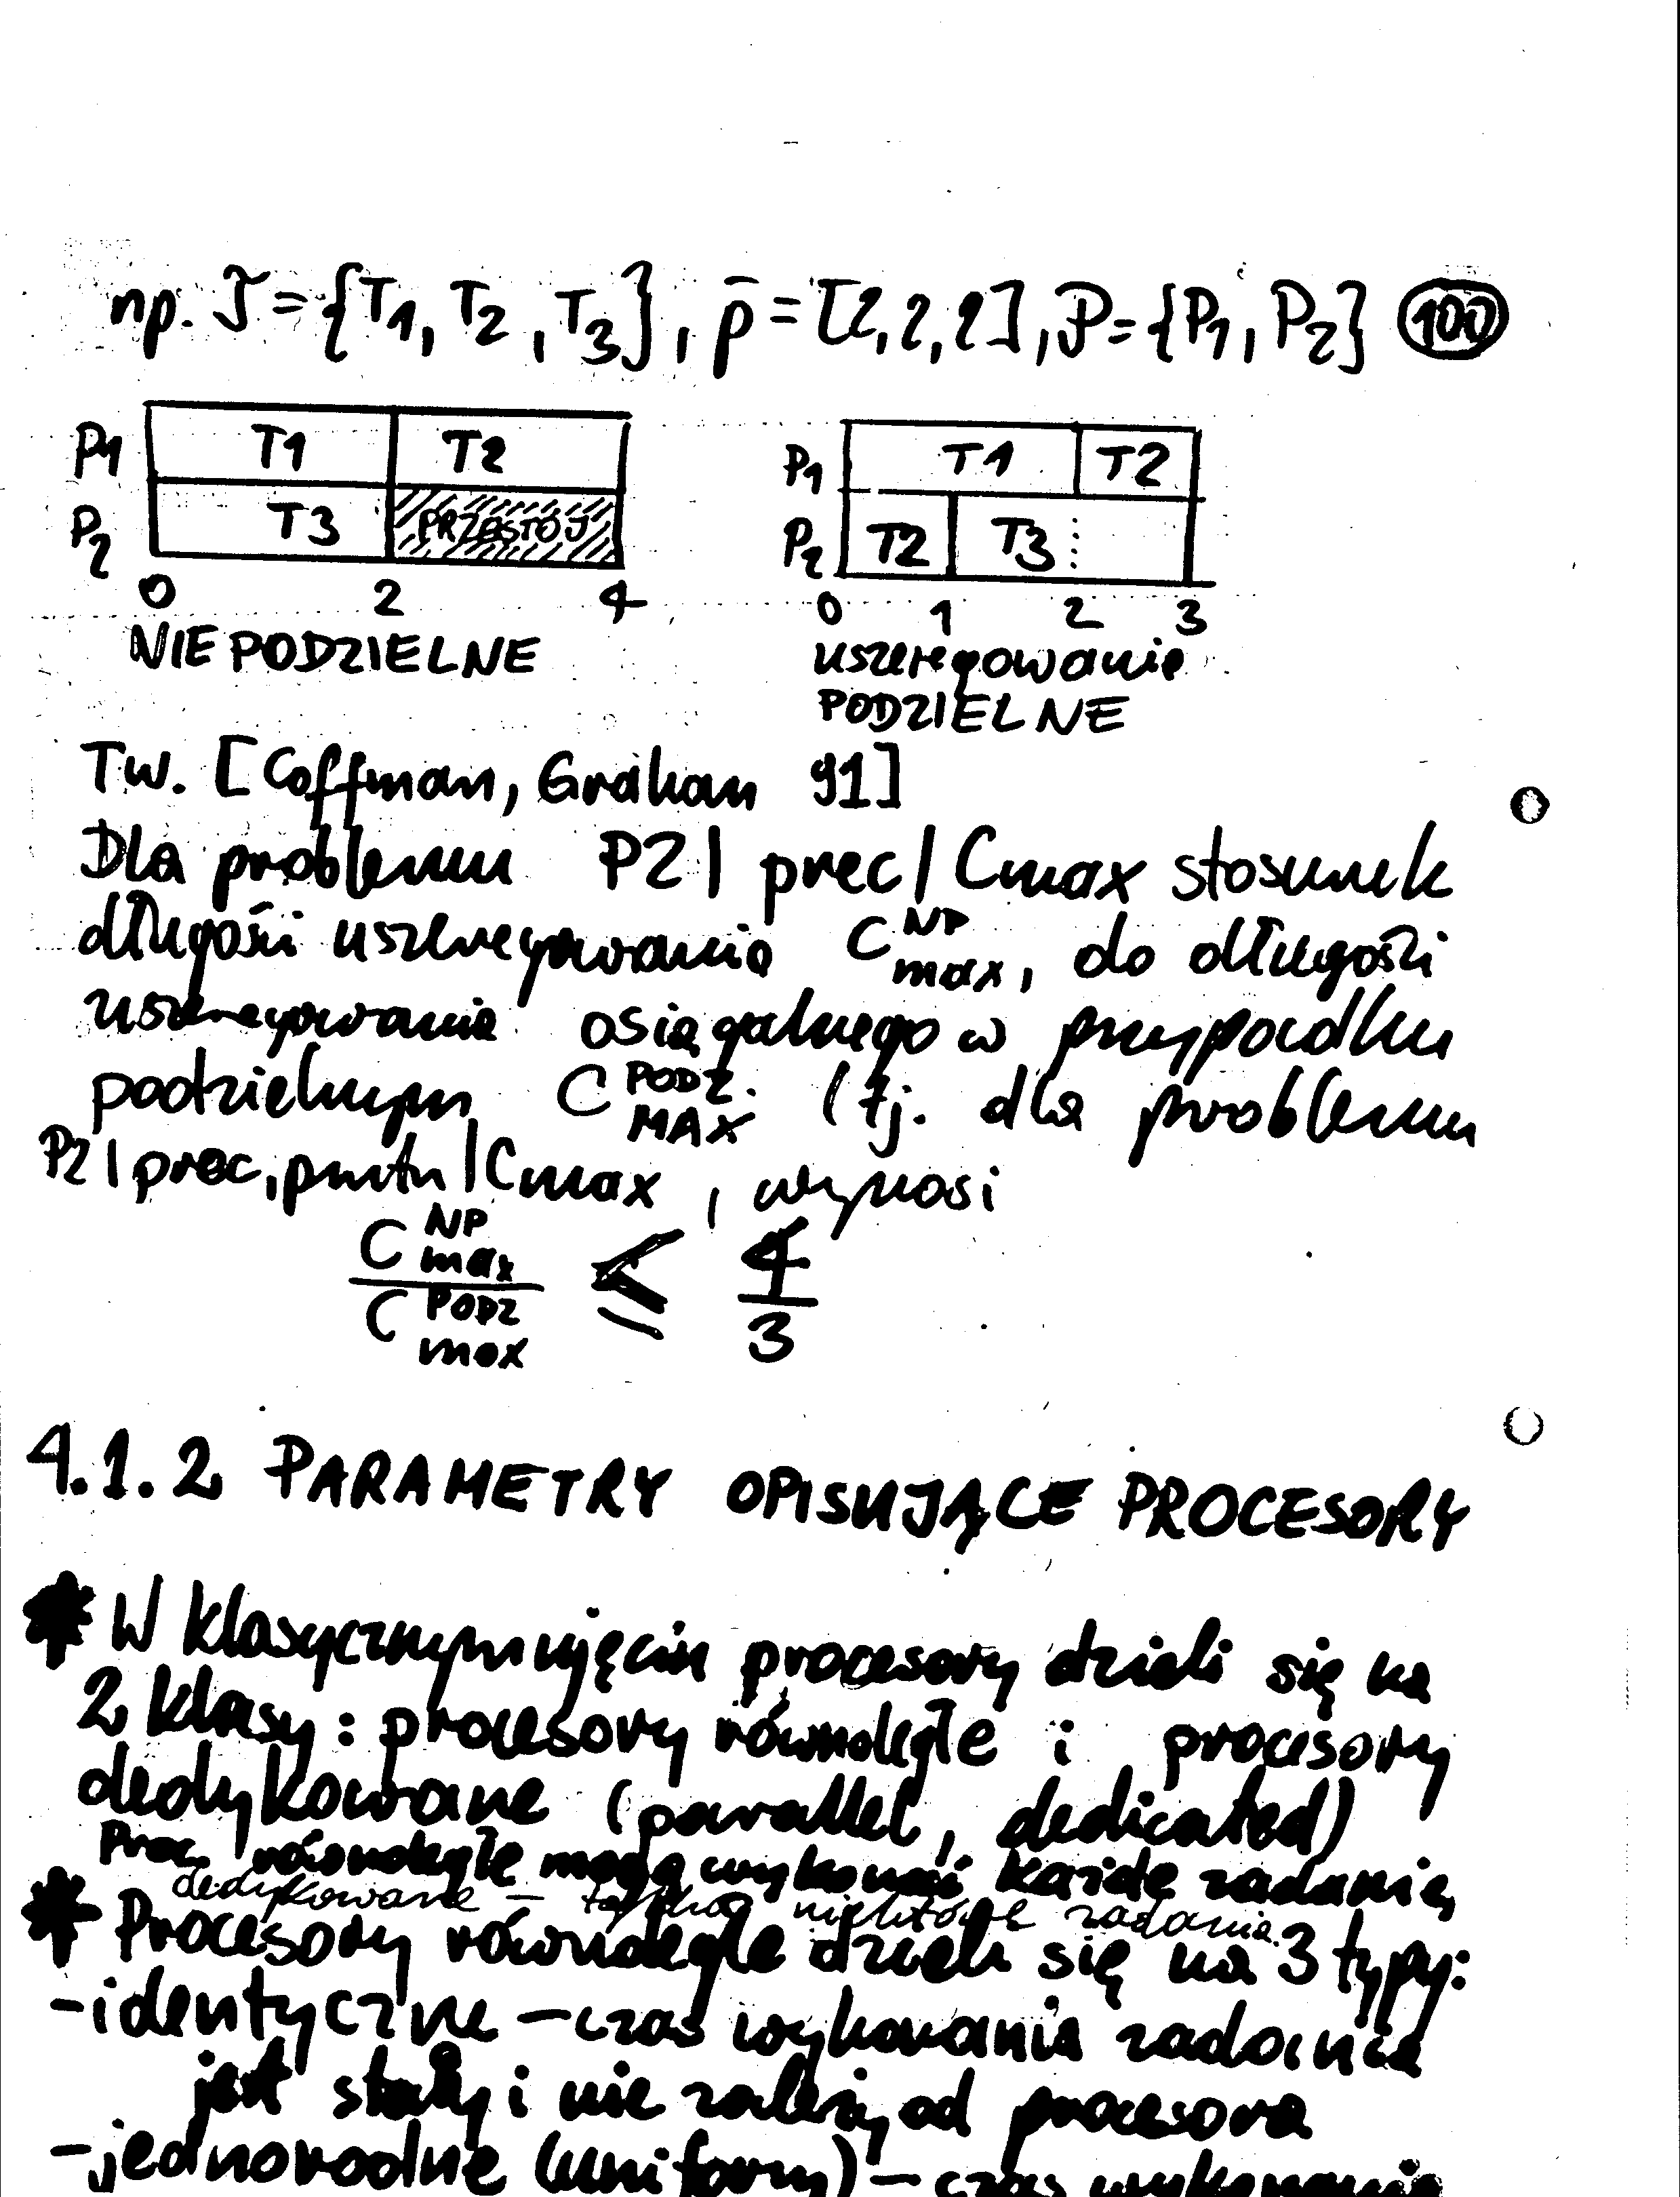 np. T = {T1, T2, T3}, p̄ = [2,2,2], P = {P1, P2} 100
P1 T1 T2
P2 T3 PRZESTÓJ
0 2 4
NIEPODZIELNE
P1 T1 T2
P2 T2 T3
0 1 2 3
uszeregowanie
PODZIELNE
Tw. [Coffman, Graham 91]
Dla problemu P2 | prec | Cmax stosunek
długości uszeregowania C^NP_max, do długości
uszeregowania osiągalnego w przypadku
podzielnym C^PODZ._MAX (tj. dla problemu
P2 | prec, pmtn | Cmax, wynosi
C^NP_max / C^PODZ_max ≤ 4/3
4.1.2 PARAMETRY OPISUJĄCE PROCESORY
* W klasycznym ujęciu procesory dzieli się na
2 klasy: procesory równoległe i procesory
dedykowane (parallel, dedicated)
Proc. równoległe mogą wykonać każde zadanie,
dedykowane – tylko niektóre zadania.
* Procesory równoległe dzieli się na 3 typy:
- identyczne – czas wykonania zadania
jest stały i nie zależy od procesora
- jednorodne (uniform) – czas wykonania